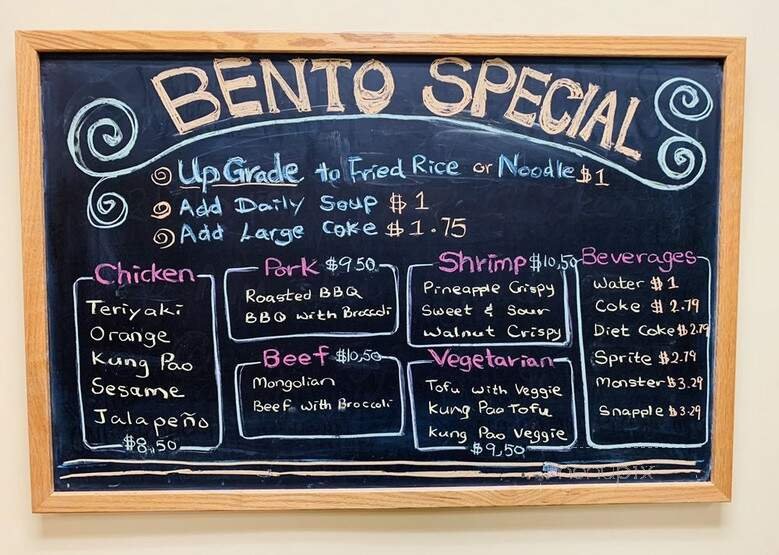 BENTO SPECIAL
UpGrade to Fried Rice or Noodle $1
Add Daily Soup $1
Add Large Coke $1.75
Chicken
Teriyaki
Orange
Kung Pao
Sesame
Jalapeño
$8.50
Pork $9.50
Roasted BBQ
BBQ with Broccoli
Beef $10.50
Mongolian
Beef with Broccoli
Shrimp $10.50
Pineapple Crispy
Sweet & Sour
Walnut Crispy
Vegetarian
Tofu with Veggie
Kung Pao Tofu
Kung Pao Veggie
$9.50
Beverages
Water $1
Coke $2.79
Diet Coke $2.79
Sprite $2.79
Monster $3.29
Snapple $3.29